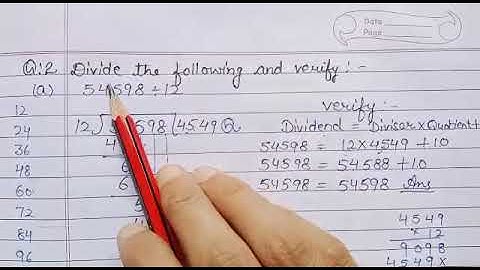 Date
Page
Q.2 Divide the following and verify :-
(a) 54598 ÷ 12
12
24
36
48
60
72
84
96
12) 598 (4549 Q
4
6
verify :-
Dividend = Divisor × Quotient +
54598 = 12 × 4549 + 10
54598 = 54588 + 10
54598 = 54598 Ans
4549
× 12
9098
4549×